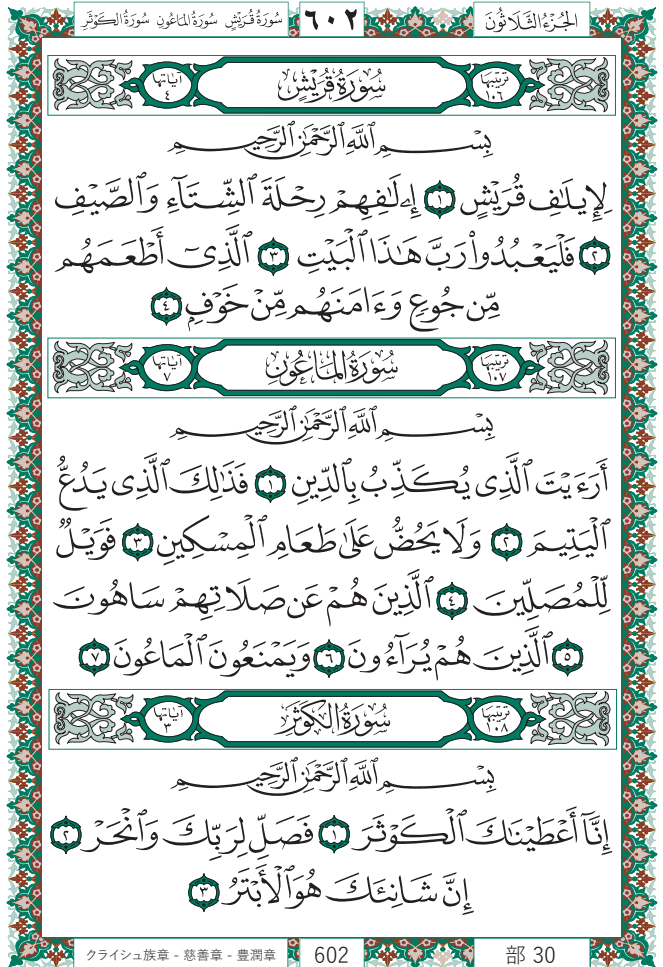 سُورَةُ قُرَيْشٍ سُورَةُ المَاعُونِ سُورَةُ الكَوْثَرِ ٦٠٢ الجُزْءُ الثَّلَاثُونَ
تَرْتِيبُهَا ١٠٦ سُورَةُ قُرَيْشٍ آيَاتُهَا ٤
بِسْمِ ٱللَّهِ ٱلرَّحْمَٰنِ ٱلرَّحِيمِ
لِإِيلَٰفِ قُرَيْشٍ ١ إِۦلَٰفِهِمْ رِحْلَةَ ٱلشِّتَآءِ وَٱلصَّيْفِ
٢ فَلْيَعْبُدُوا۟ رَبَّ هَٰذَا ٱلْبَيْتِ ٣ ٱلَّذِىٓ أَطْعَمَهُم
مِّن جُوعٍ وَءَامَنَهُم مِّنْ خَوْفٍۭ ٤
تَرْتِيبُهَا ١٠٧ سُورَةُ المَاعُونِ آيَاتُهَا ٧
بِسْمِ ٱللَّهِ ٱلرَّحْمَٰنِ ٱلرَّحِيمِ
أَرَءَيْتَ ٱلَّذِى يُكَذِّبُ بِٱلدِّينِ ١ فَذَٰلِكَ ٱلَّذِى يَدُعُّ
ٱلْيَتِيمَ ٢ وَلَا يَحُضُّ عَلَىٰ طَعَامِ ٱلْمِسْكِينِ ٣ فَوَيْلٌ
لِّلْمُصَلِّينَ ٤ ٱلَّذِينَ هُمْ عَن صَلَاتِهِمْ سَاهُونَ
٥ ٱلَّذِينَ هُمْ يُرَآءُونَ ٦ وَيَمْنَعُونَ ٱلْمَاعُونَ ٧
تَرْتِيبُهَا ١٠٨ سُورَةُ الكَوْثَرِ آيَاتُهَا ٣
بِسْمِ ٱللَّهِ ٱلرَّحْمَٰنِ ٱلرَّحِيمِ
إِنَّآ أَعْطَيْنَٰكَ ٱلْكَوْثَرَ ١ فَصَلِّ لِرَبِّكَ وَٱنْحَرْ ٢
إِنَّ شَانِئَكَ هُوَ ٱلْأَبْتَرُ ٣
クライシュ族章 - 慈善章 - 豊潤章 602 部 30